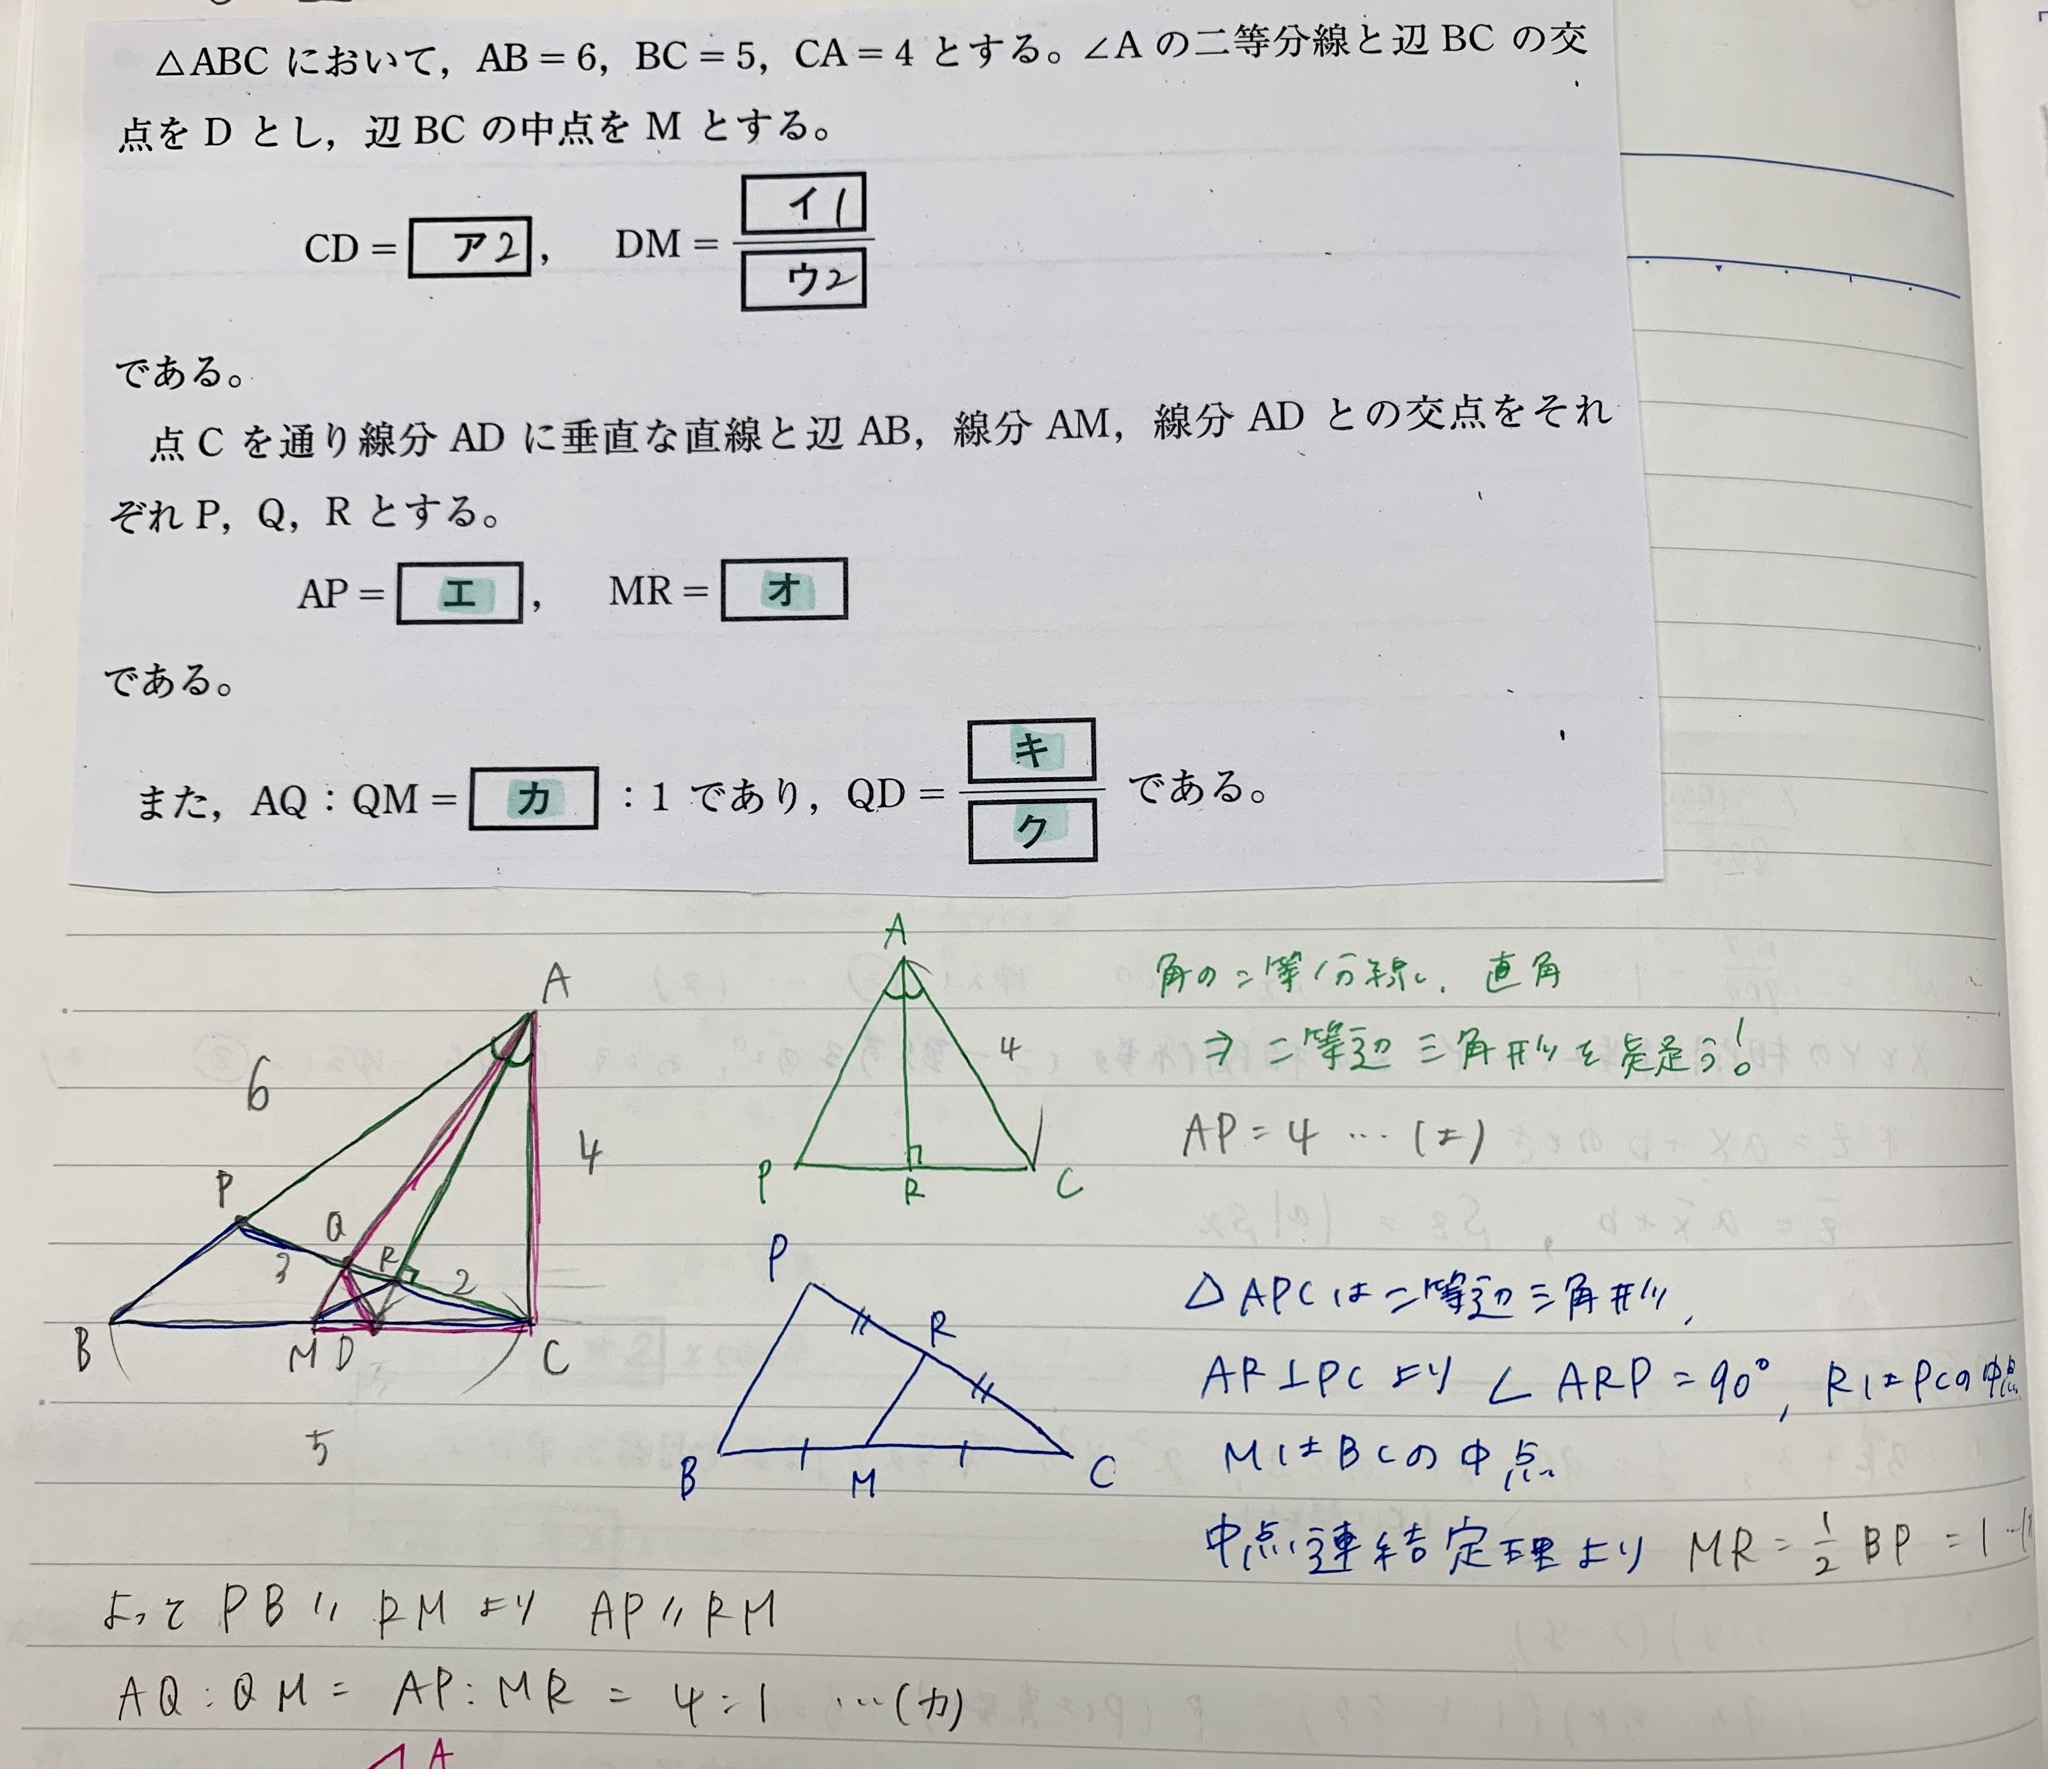 △ABC において，AB＝6，BC＝5，CA＝4 とする。∠A の二等分線と辺 BC の交
点を D とし，辺 BC の中点を M とする。
CD＝ ア2 ，　DM＝ イ1 / ウ2
である。
点 C を通り線分 AD に垂直な直線と辺 AB，線分 AM，線分 AD との交点をそれ
ぞれ P，Q，R とする。
AP＝ エ ，　MR＝ オ
である。
また，AQ：QM＝ カ ：1 であり，QD＝ キ / ク である。
A
6
4
P
Q
R
3
2
B
M
D
C
5
A
4
P
R
C
角の二等分線、直角
⇒ 二等辺三角形を
AP＝4 …(エ)
P
R
B
M
C
△APCは二等辺三角形、
AR⊥PCより∠ARP＝90°, RはPCの中点
MはBCの中点
中点連結定理より MR＝1/2 BP＝1
よって PB // RM より AP // RM
AQ：QM＝AP：MR＝4：1 …(カ)
A